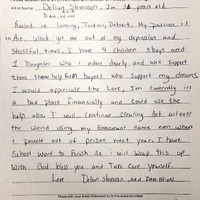 Artist Name: Delton Stevenson, Im 31 years old
Raised in Lansing, Jackson, Detroit. My passion is
in Art, which got me out of my depression and
stressful times. I have 4 children 3 boys and
1 Daughter who i adore dearly and was support
them show help from buyers who support my dreams.
I would appreciate the Love, Im currently in
a bad place financially and could use the
help also. I will continue creating Art all over
the World using my Government name even when
i parole out of prison next year. I have
School work to finish so i will wrap this up
With God bless you and Take care yourself.
Love Delton Stevenson, and